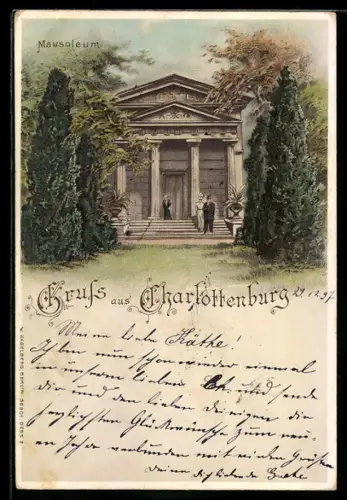 Mausoleum.
Gruss aus Charlottenburg 29.12.97
Meine liebe Käthe!
Ich bin nun schon wieder einmal
in unserem lieben und sende
dir und den lieben Deinigen die
herzlichsten Glückwünsche zum neu-
en Jahre verbunden mit vielen Grüßen
Deine dich liebende
W. HAGELBERG, BERLIN